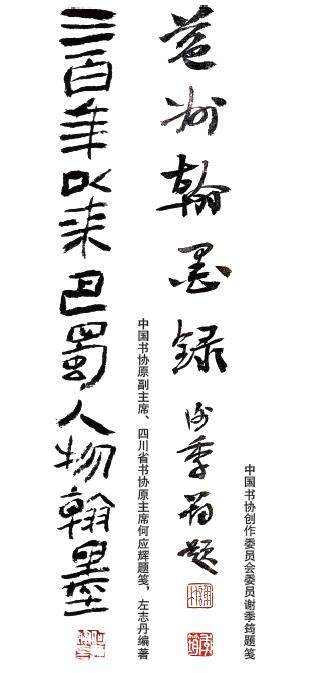 中国书协创作委员会委员谢季筠题笺
益州翰墨录 谢季筠题
中国书协原副主席、四川省书协原主席何应辉题笺，左志丹编著
三百年以来巴蜀人物翰墨